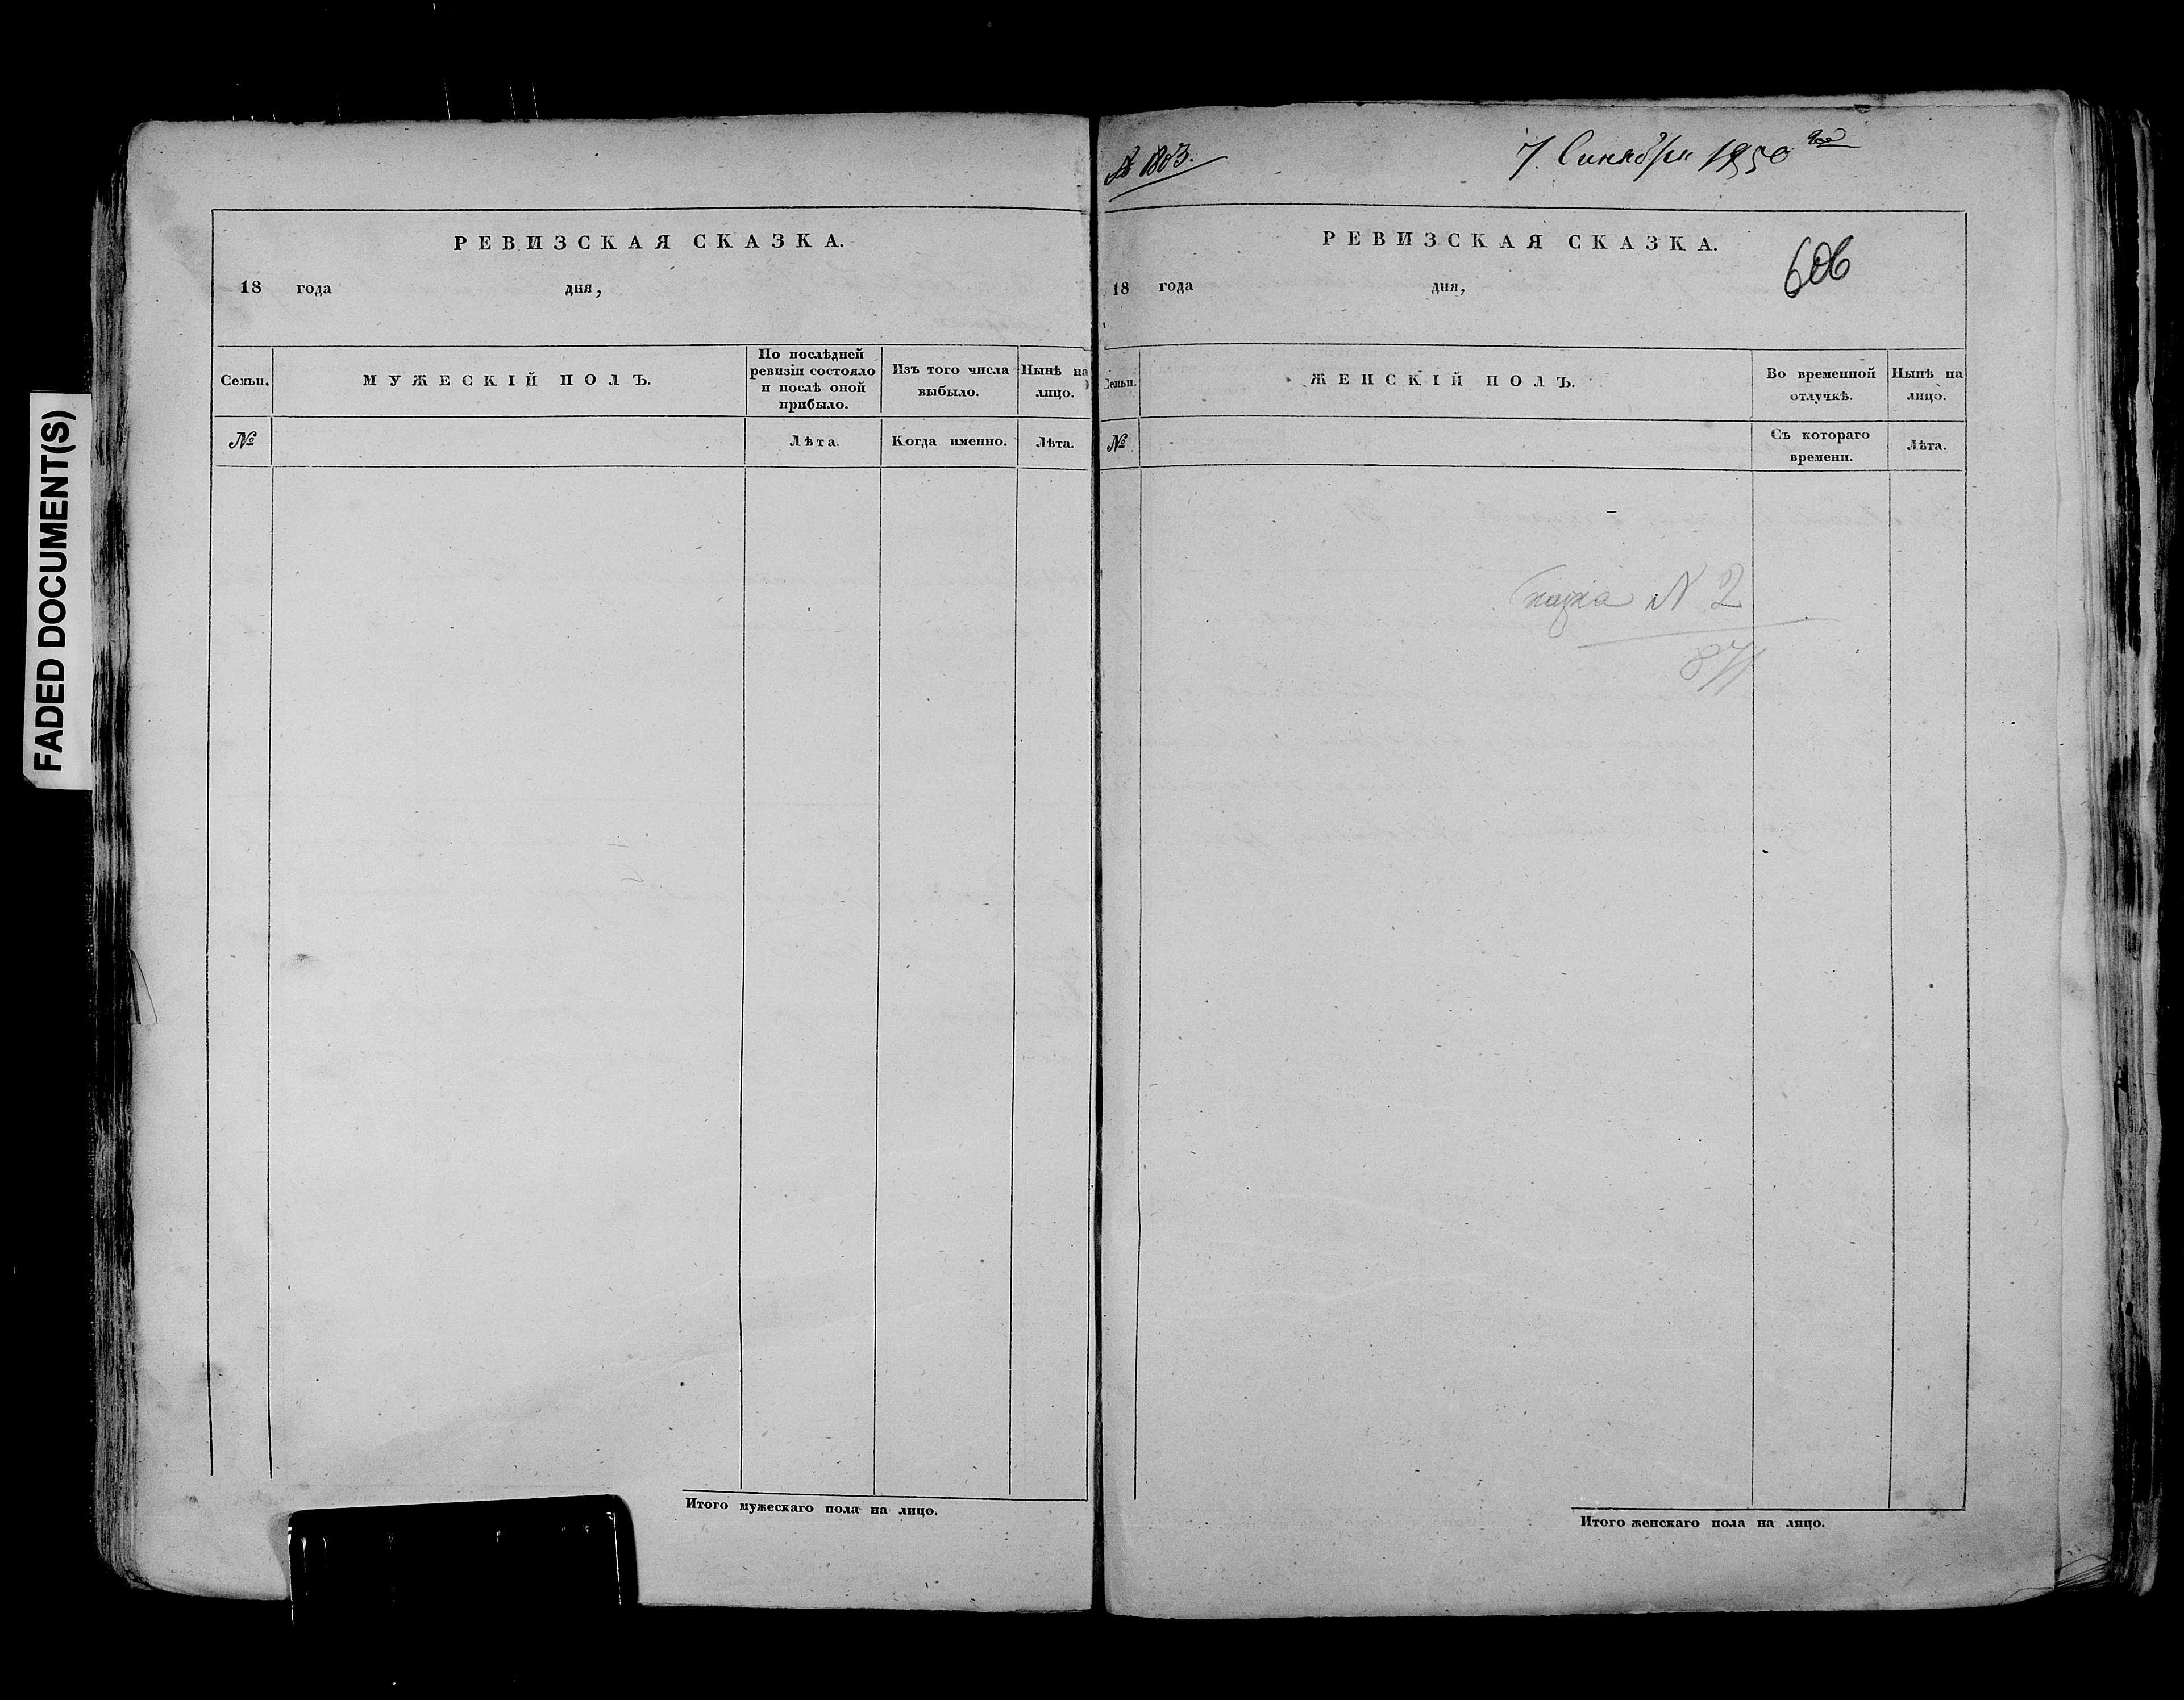 FADED DOCUMENT(S)
РЕВИЗСКАЯ СКАЗКА.
18 года дня,
Семьи.
МУЖЕСКІЙ ПОЛЪ.
По послѣдней
ревизіи состояло
и послѣ оной
прибыло.
Изъ того числа
выбыло.
Нынѣ на
лицо.
№
Лѣта.
Когда именно.
Лѣта.
Итого мужескаго пола на лицо.
№ 1803.
7. Сентября 1850 года
РЕВИЗСКАЯ СКАЗКА.
606
18 года дня,
Семьи.
ЖЕНСКІЙ ПОЛЪ.
Во временной
отлучкѣ.
Нынѣ на
лицо.
№
Съ котораго
времени.
Лѣта.
Сказка N 2
871
Итого женскаго пола на лицо.